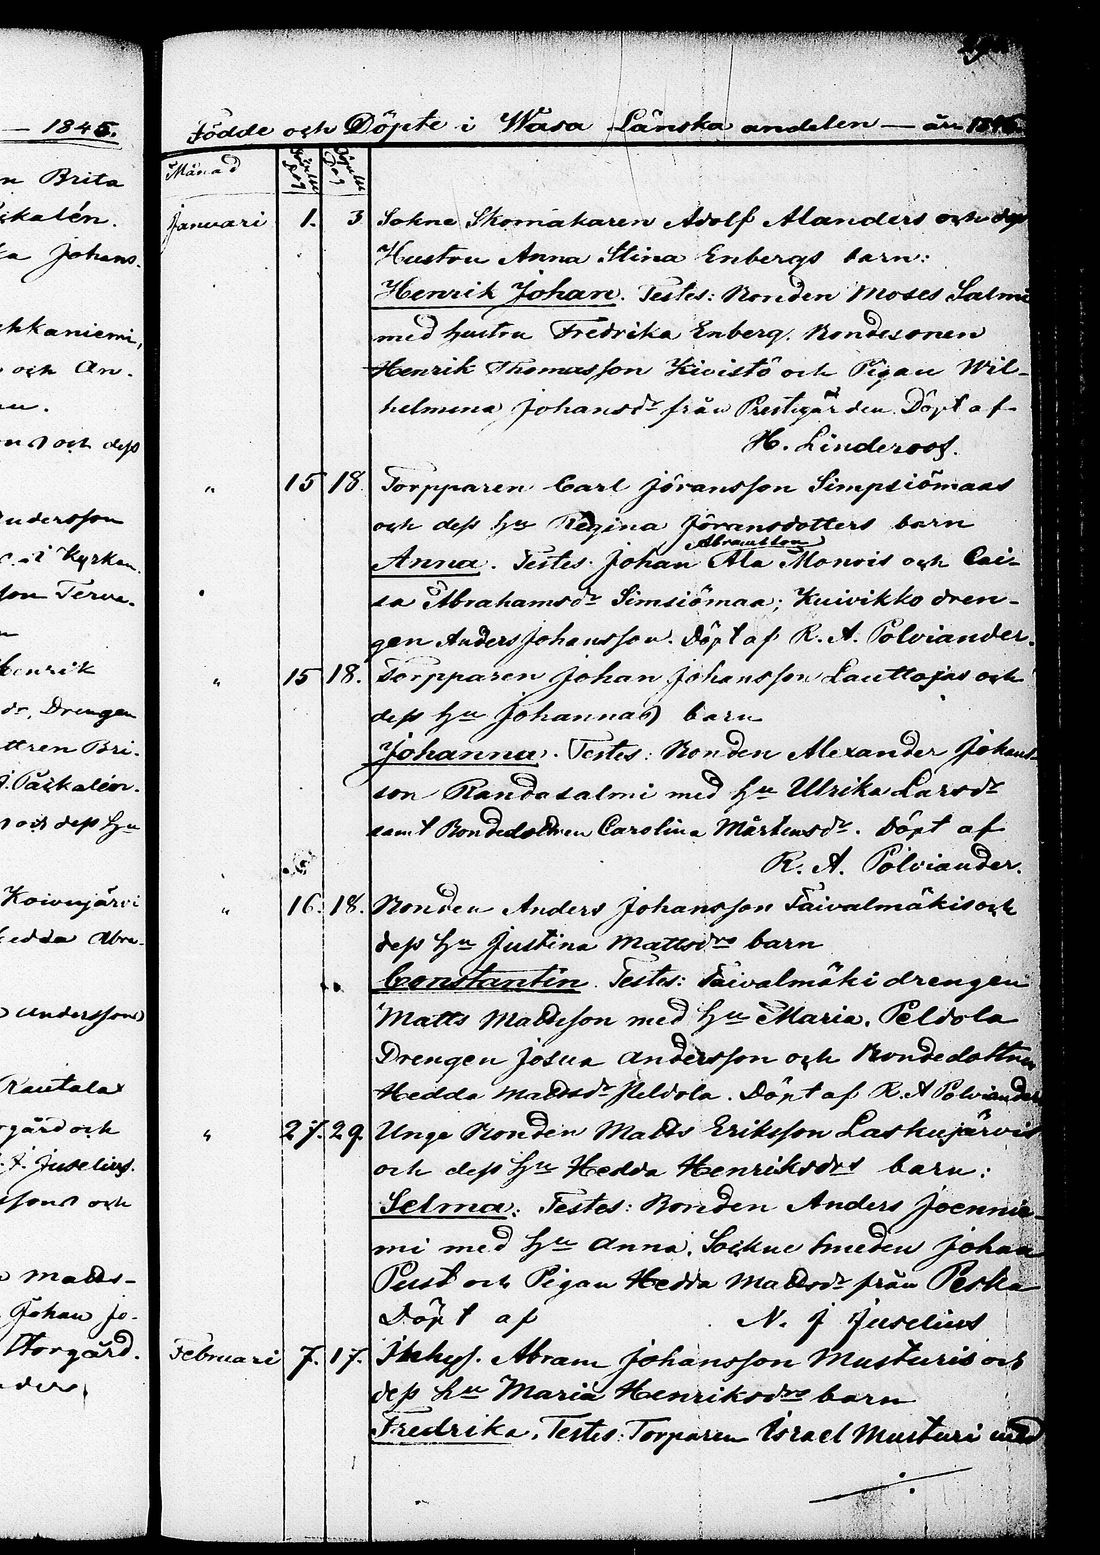 — 1845.
n Brita
skalén.
ka Johans-
hkaniemi,
och An-
och dess
Andersson
i Kyrkan
son Terva-
Henrik
Drengen
ttren Bri-
Påskalén.
och dess Hu
Koivujärvi
Hedda Abra-
Andersson
Rautala
rgård och
J. Juselius.
sson och
Matts-
Johan Jo-
Storgård.
Födde och Döpte i Wasa Länska andelen — år 1846.
Månad
Födelse Dag
Döpelse Dag
Januari 1. 3 Sokne Skomakaren Adolf Alanders och dess
Hustru Anna Stina Enbergs barn:
Henrik Johan. Testes: Bonden Moses Salmi
med hustru Fredrika Enberg. Bondesonen
Henrik Thomasson Kivistö och Pigan Wil-
helmina Johansdr från Prestegården. Döpt af
H. Linderoos.
" 15 18 Torpparen Carl Jöransson Simpsiömaas
och dess Hu Regina Jöransdotters barn
Abramsson
Anna. Testes: Johan Ala Monois och Cai-
sa Abrahamsdr Simsiömaa; Kuivikko dren-
gen Anders Johansson. Döpt af R. A. Polviander.
" 15 18. Torpparen Johan Johansson Lauttojas och
dess Hu Johannas barn
Johanna. Testes: Bonden Alexander Johans-
son Randasalmi med Hu Ulrika Larsdr
samt Bondedottren Carolina Mårtensdr. Döpt af
R. A. Polviander.
" 16. 18. Bonden Anders Johansson Taivalmäkis och
dess Hu Justina Mattsdrs barn
Constantin. Testes: Taivalmäki drengen
Matts Mattsson med Hu Maria. Peldola
Drengen Josua Andersson och Bondedottren
Hedda Mattsdr Peldola. Döpt af R. A Polviander
" 27. 29. Unge Bonden Matts Eriksson Laskujärvis
och dess Hu Hedda Henriksdrs barn:
Selma. Testes: Bonden Anders Joennie-
mi med Hu Anna. Sockne Smeden Johan
Pust och Pigan Hedda Mattsdr från Peska
Döpt af N. J Juselius
Februari 7. 17. Inhys. Abram Johansson Musturis och
dess Hu Maria Henriksdrs barn
Fredrika. Testes: Torparen Israel Musturi med